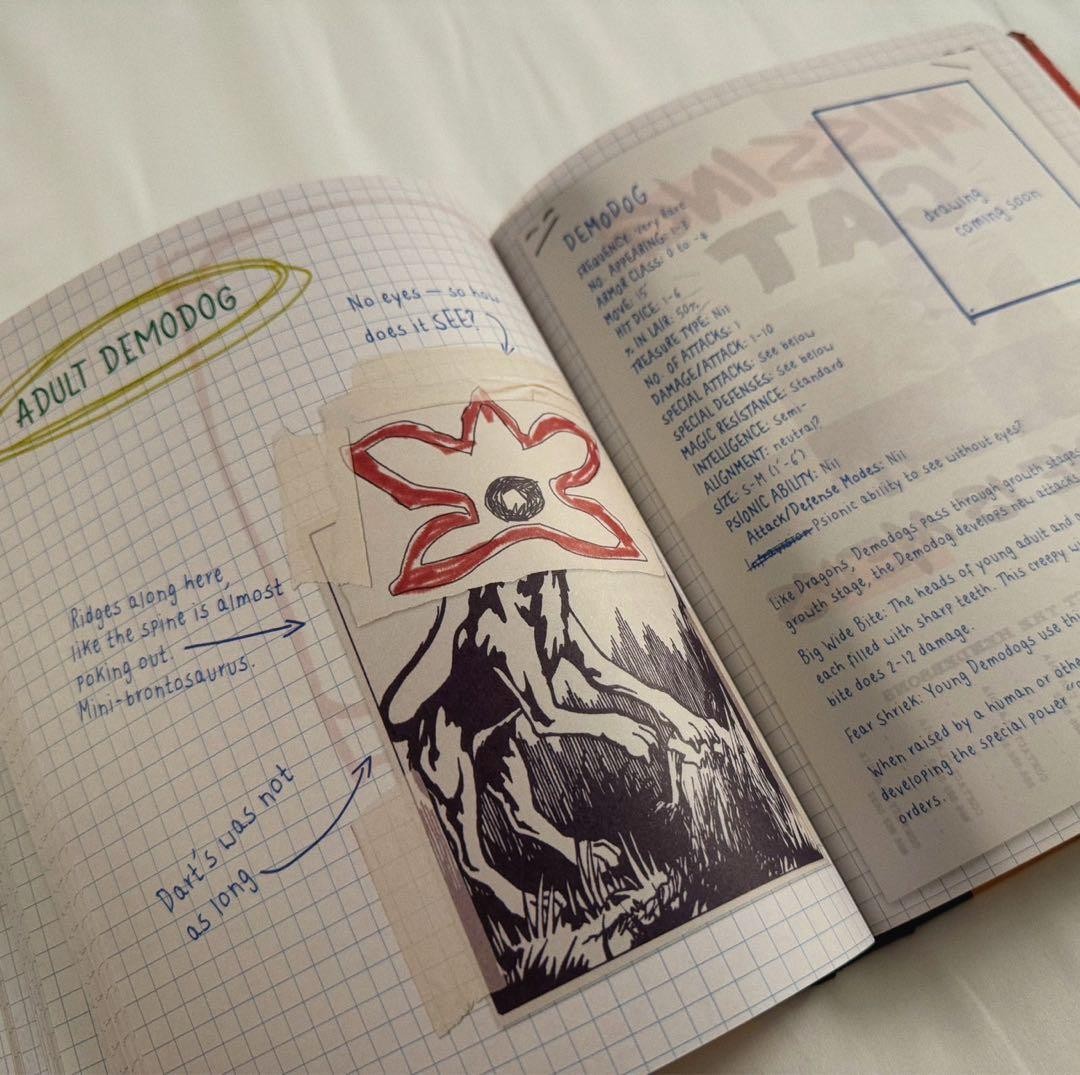 ADULT DEMODOG
No eyes — so how
does it SEE?
Ridges along here,
like the spine is almost
poking out.
Mini-brontosaurus.
Dart's was not
as long
DEMODOG
FREQUENCY: Very Rare
NO. APPEARING: 1-8
ARMOR CLASS: 0 to
MOVE: 15
HIT DICE: 1-6
% IN LAIR: 50%
TREASURE TYPE: Nil
NO. OF ATTACKS: 1
DAMAGE/ATTACK: 1-10
SPECIAL ATTACKS: See below
SPECIAL DEFENSES: See below
MAGIC RESISTANCE: Standard
INTELLIGENCE: Semi-
ALIGNMENT: neutral?
SIZE: S-M (1'-6')
PSIONIC ABILITY: Nil
Attack/Defense Modes: Nil
Infravision Psionic ability to see without eyes?
Like Dragons, Demodogs pass through growth stages
growth stage, the Demodog develops new attacks
Big Wide Bite: The heads of young adult and
each filled with sharp teeth. This creepy
bite does 2-12 damage.
Fear Shriek: Young Demodogs use this
When raised by a human or other
developing the special power
orders.
drawing
coming soon
MISSING
CAT